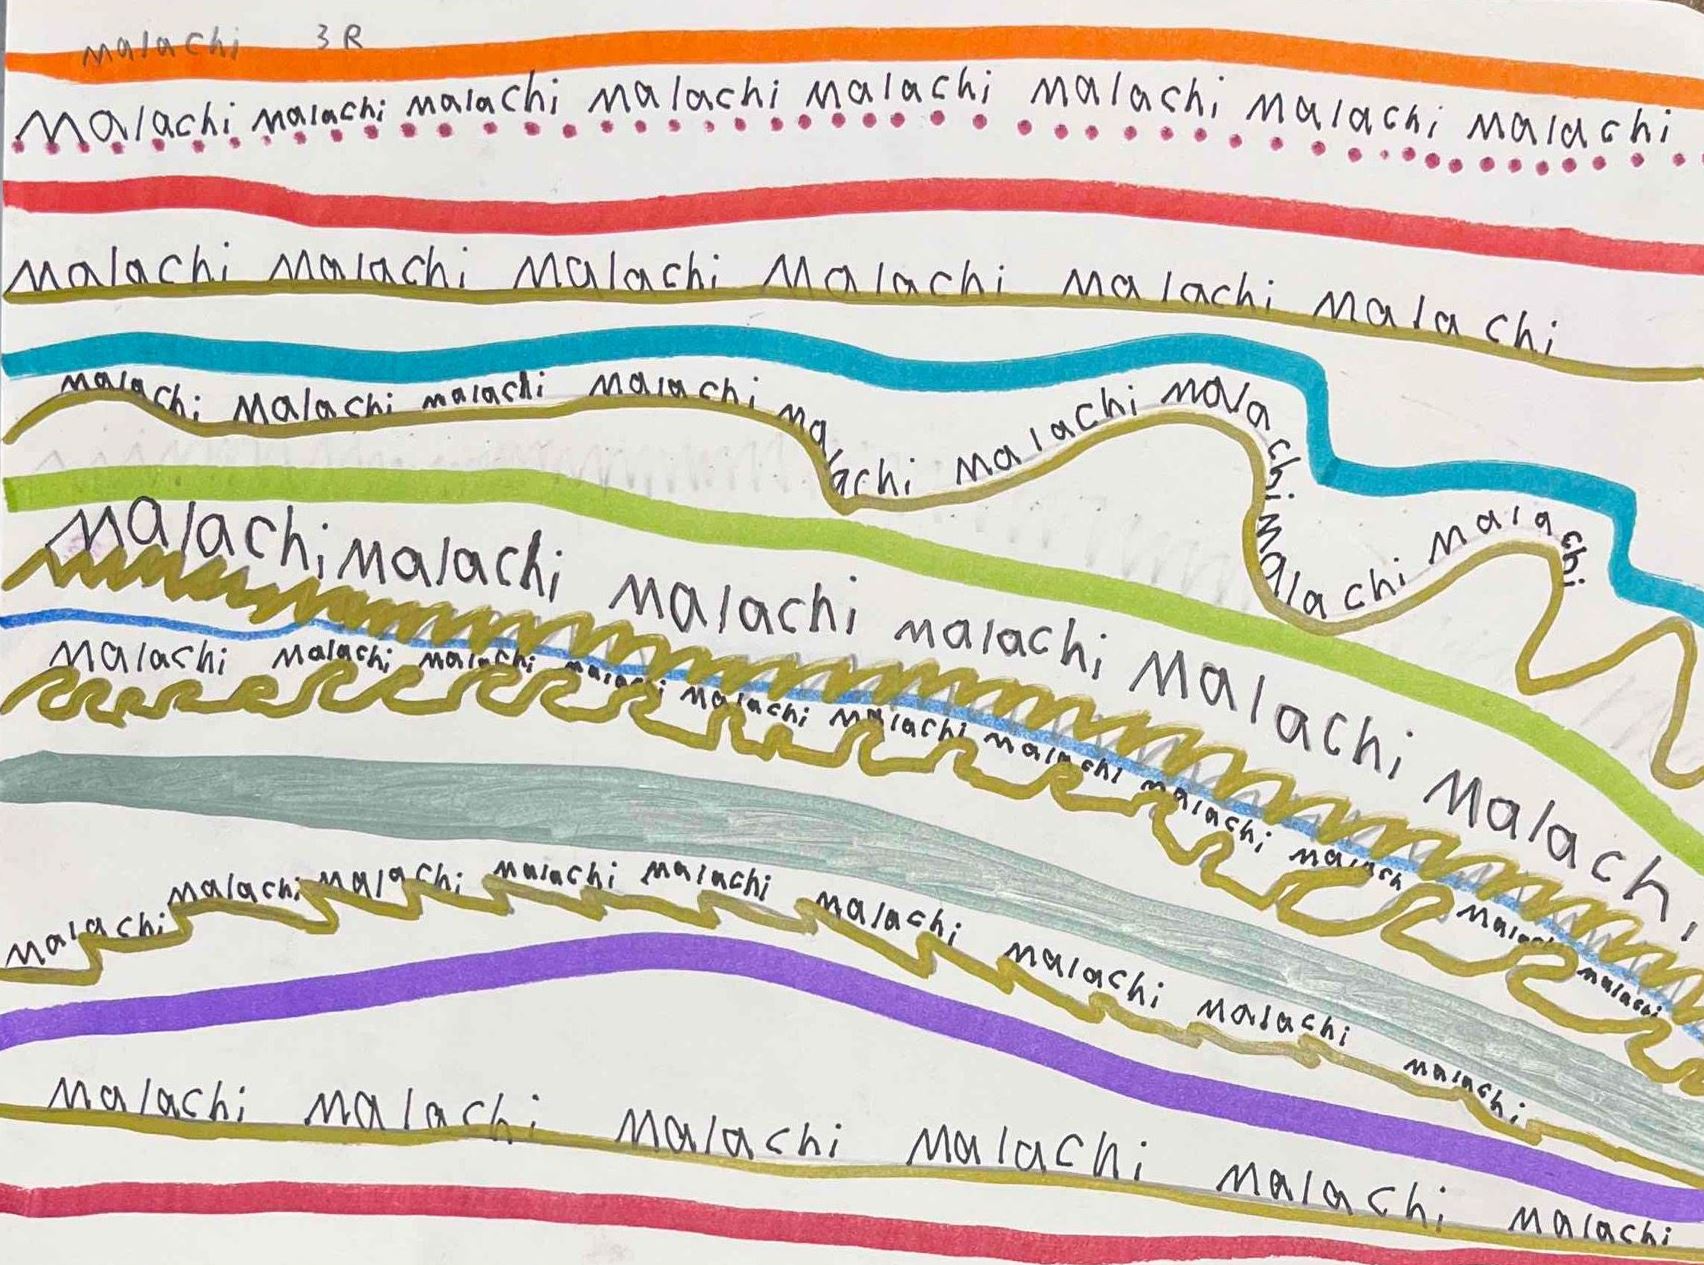 malachi 3R
Malachi malachi malachi malachi malachi malachi malachi malachi
malachi malachi malachi malachi malachi malachi
malachi malachi malachi malachi malachi malachi malachi malachi malachi
malachi malachi malachi malachi malachi malachi
malachi malachi malachi malachi malachi malachi malachi malachi malach malachi malachi
malachi malachi malachi malachi malachi malachi malachi malachi malachi
malachi malachi malachi malachi malachi malachi